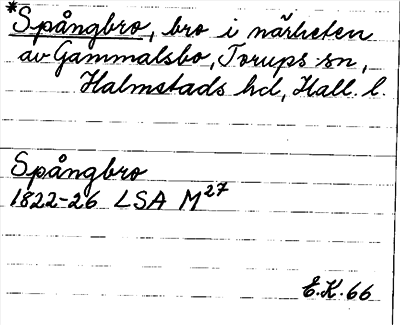 *Spångbro, bro i närheten
av Gammalsbo, Torups sn,
Halmstads hd, Hall. l.
Spångbro
1822-26 LSA M27
E.K. 66